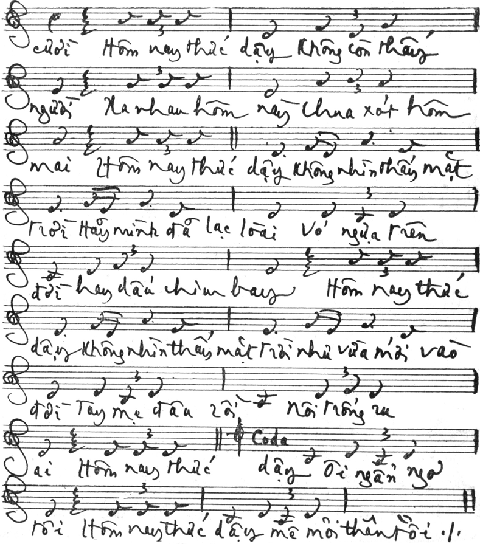 cười Hôm nay thức dậy Không còn thấy
người Xa nhau hôm nay Chua xót hôm
mai Hôm nay thức dậy Không nhìn thấy mặt
trời Hay mình đã lạc loài Vó ngựa trên
đồi hay dấu chim bay Hôm nay thức
dậy Không nhìn thấy mặt trời như vừa mới vào
đời Tay mẹ đâu rồi Nôi trống ru
ai Hôm nay thức Coda dậy Ôi ngẩn ngơ
tôi Hôm nay thức dậy mà môi thần tồi ./.